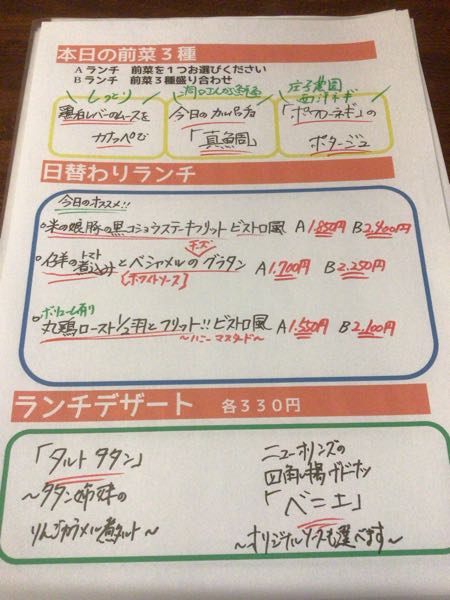 本日の前菜3種
Aランチ 前菜を1つお選びください
Bランチ 前菜3種盛り合わせ
しっとり
鶏白レバーのムースを
カナッペで
今日のカルパッチョ
「真鯛」
庄子農園
西洋ネギ
「ポワローネギ」の
ポタージュ
日替わりランチ
今日のオススメ!!
米の娘豚の黒コショウステーキフリット ビストロ風 A1.850円 B2.400円
仔羊のトマト煮込みとベシャメルのチーズグラタン A1.700円 B2.250円
(ホワイトソース)
ボリューム有り
丸鶏ロースト1/2羽とフリット!!ビストロ風 A1.550円 B2.100円
〜ハニーマスタード〜
ランチデザート 各330円
「タルトタタン」
〜タタン姉妹の
りんごカラメル煮タルト〜
ニューオリンズの
四角い揚げドーナツ
「ベニエ」
〜オリジナルソースも選べます〜